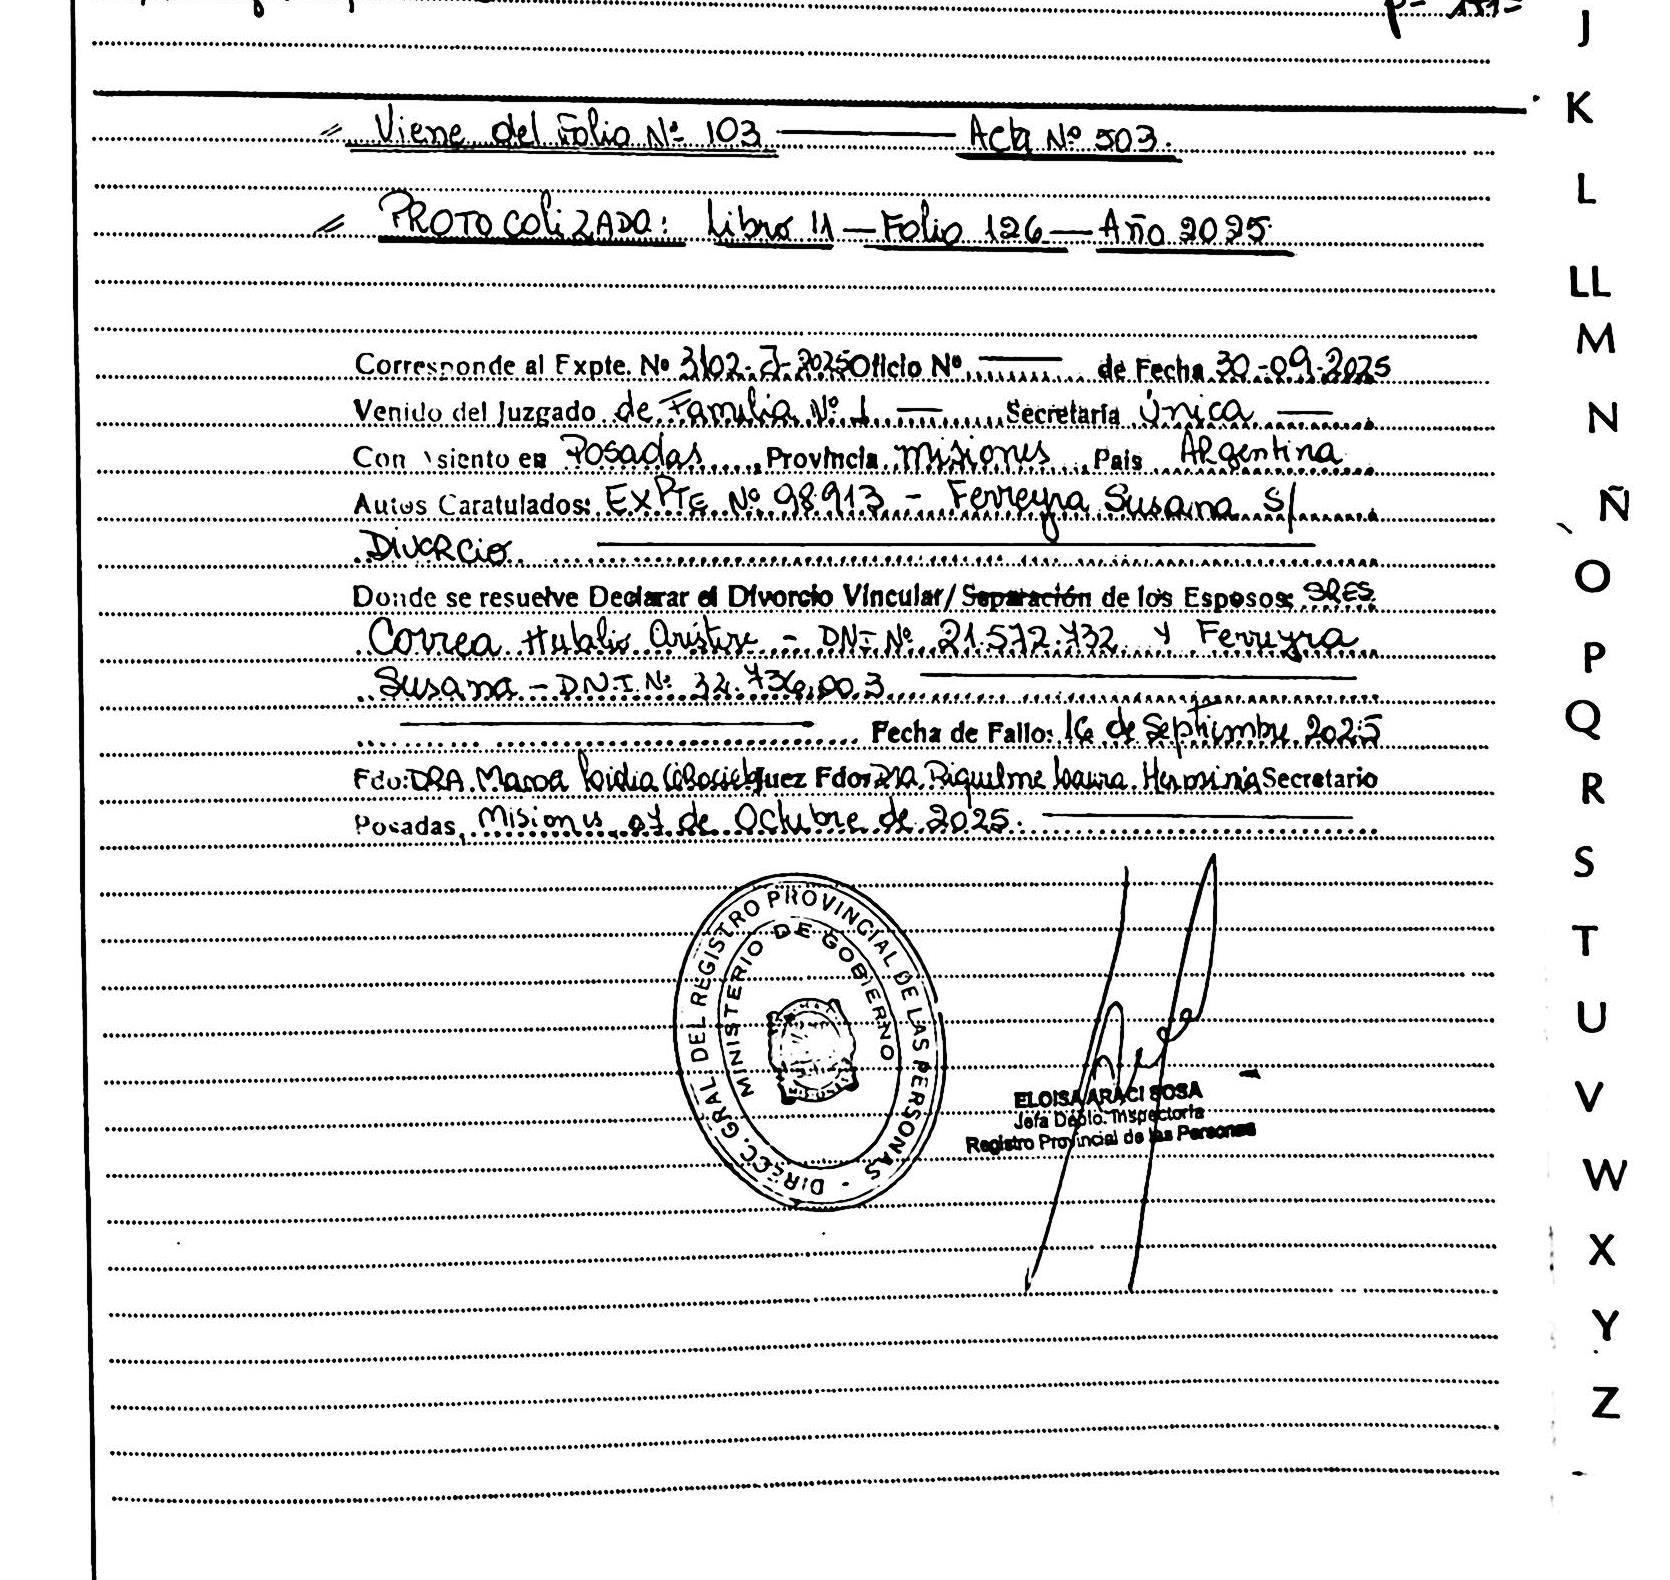 Viene del Folio Nº 103 Acta Nº 503.
PROTOCOLIZADA: Libro 11 — Folio 126 — Año 2025.
Corresponde al Expte. Nº 3102-J-2025 Oficio Nº de Fecha 30-09-2025
Venido del Juzgado de Familia Nº 1 — Secretaría Única —
Con siento en Posadas, Provincia Misiones, País Argentina
Autos Caratulados: EXPTE Nº 98.913 - Ferreyra Susana S/
DIVORCIO
Donde se resuelve Declarar el Divorcio Vincular/ Separación de los Esposos: SRES
Correa - DNI Nº 21.572.732 y Ferreyra
Susana - DNI Nº 32.736.003
Fecha de Fallo: 16 de Septiembre 2025
Fdo: DRA. Juez Fdo: DRA. Riquelme Laura Herminia Secretario
Posadas, Misiones, 07 de Octubre de 2025.
DIRECC. GRAL. DEL REGISTRO PROVINCIAL DE LAS PERSONAS -
MINISTERIO DE GOBIERNO
ELOISA ARACI SOSA
Jefa Depto. Inspectoría
Registro Provincial de las Personas
J
K
L
LL
M
N
Ñ
O
P
Q
R
S
T
U
V
W
X
Y
Z